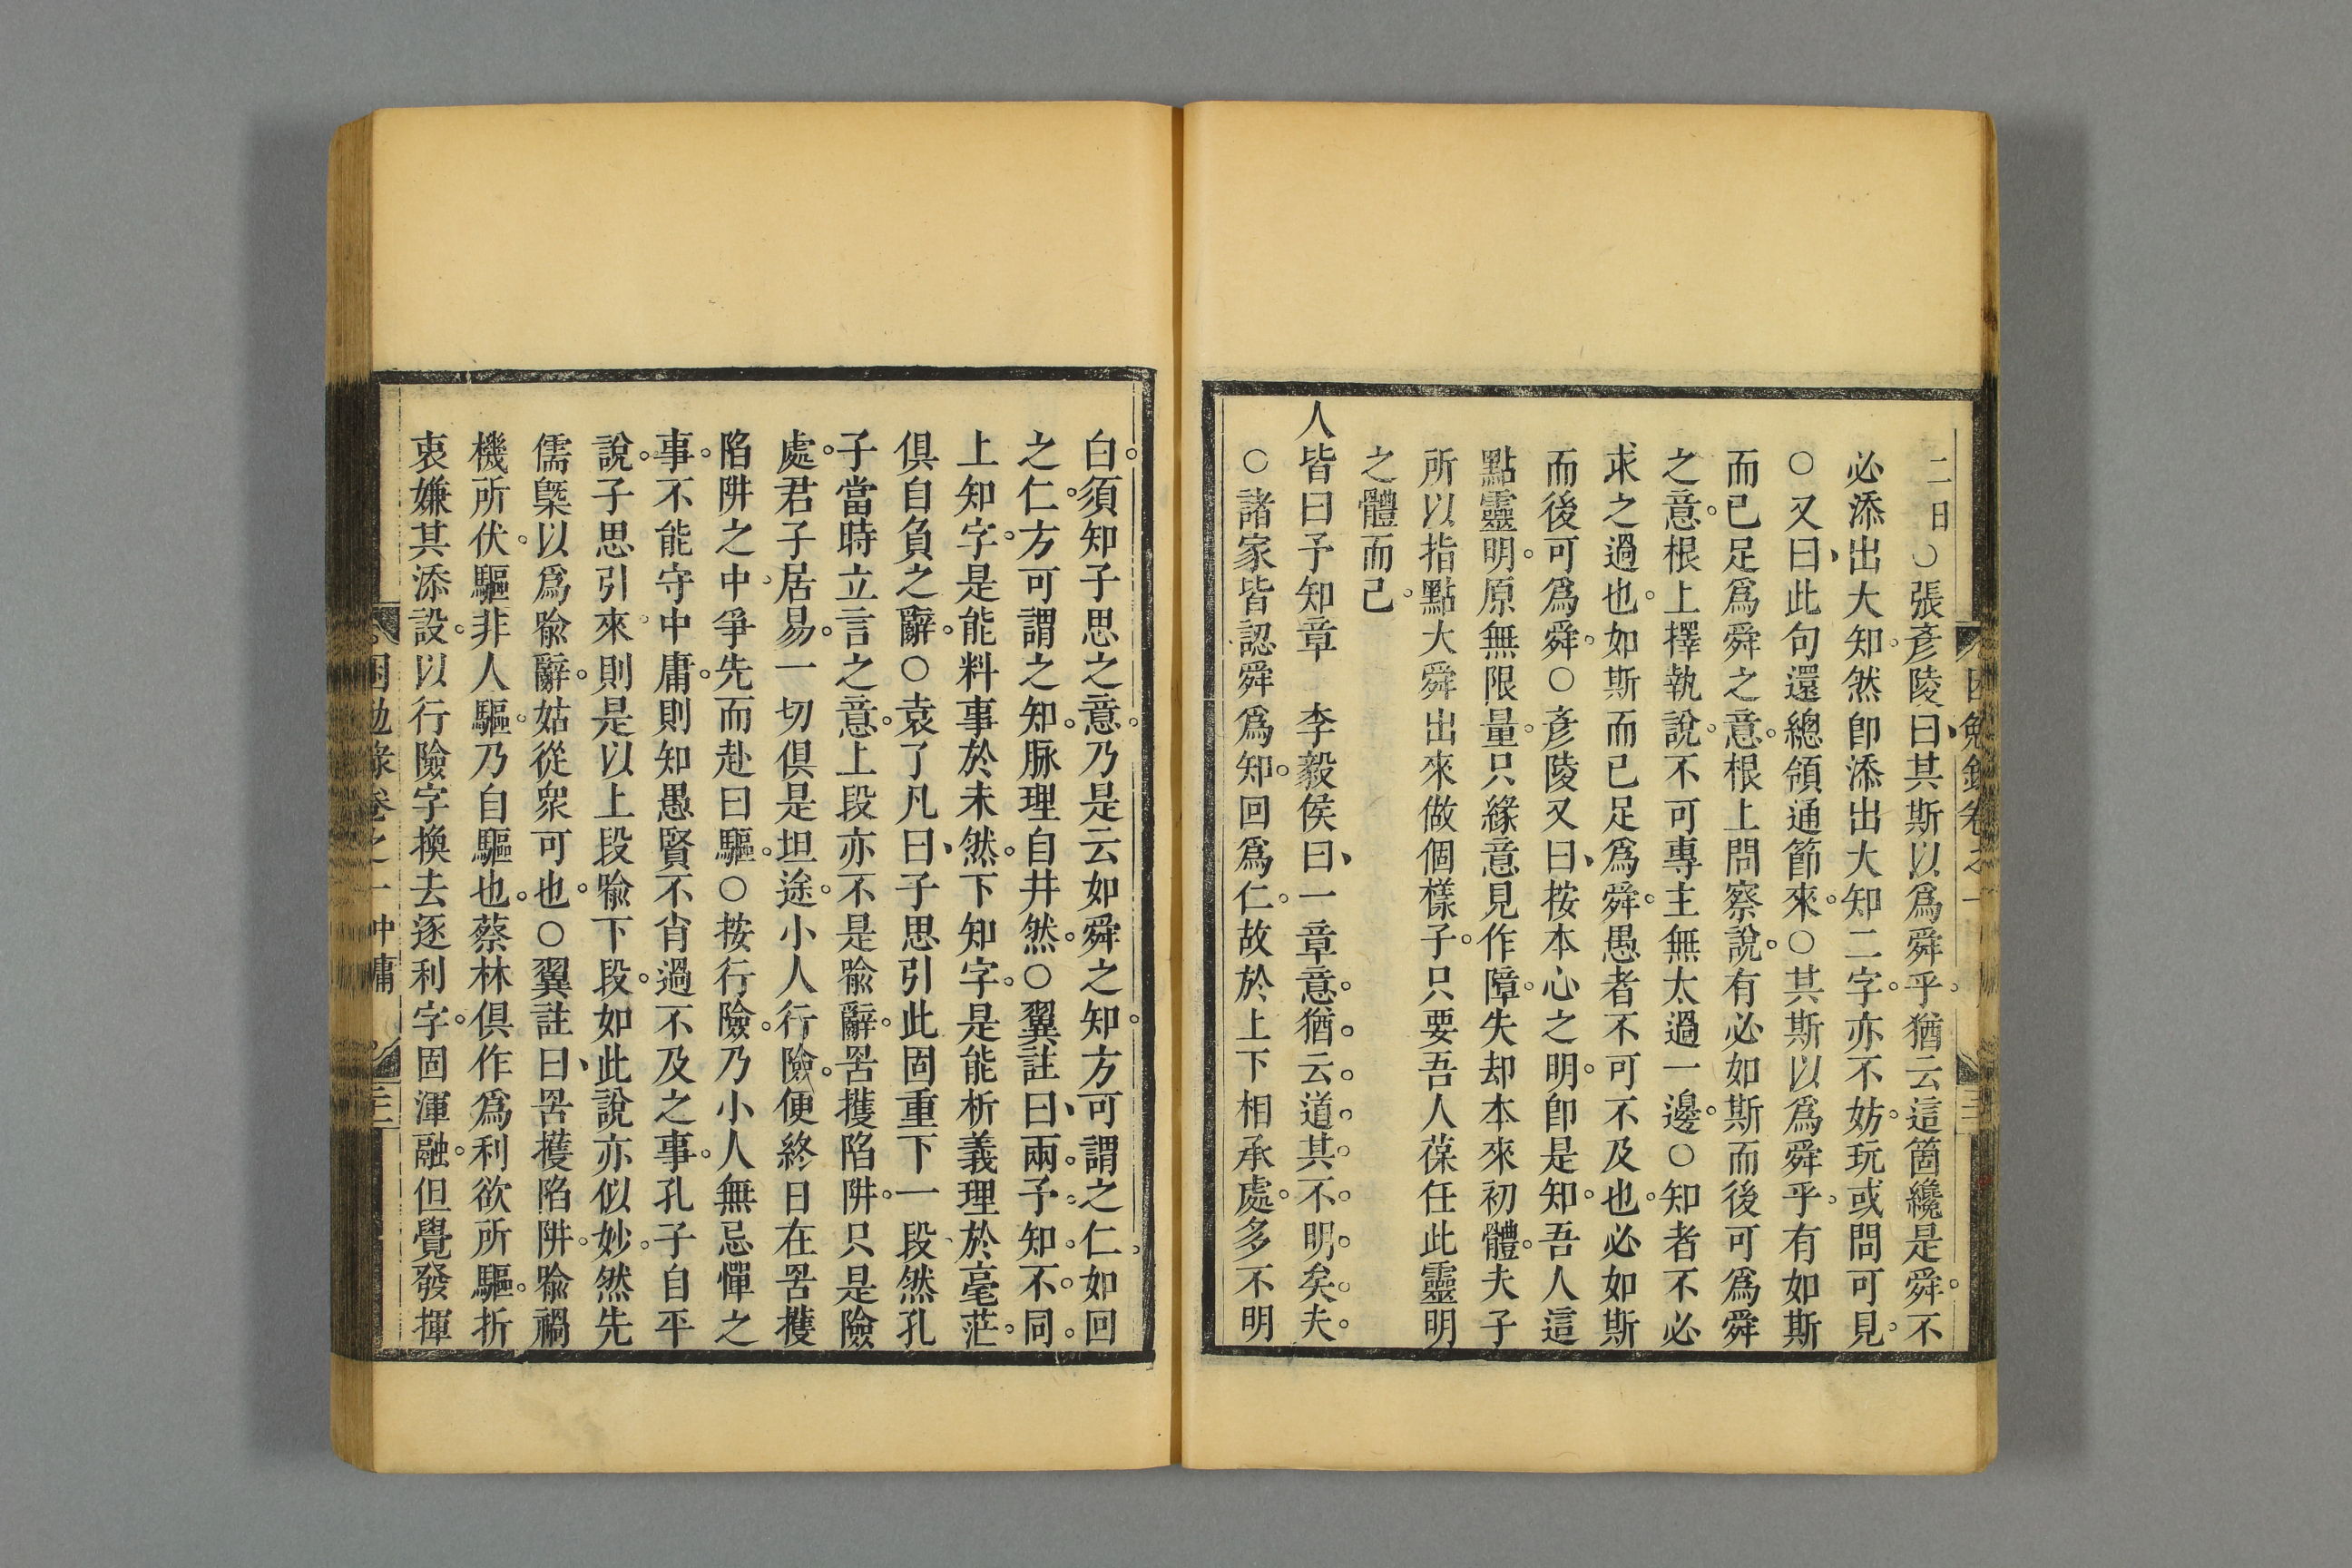 二日○張彥陵曰其斯以爲舜乎猶云這箇纔是舜不
必添出大知然卽添出大知二字亦不妨玩或問可見
○又曰此句還總領通節來○其斯以爲舜乎有如斯
而已足爲舜之意根上問察說有必如斯而後可爲舜
之意根上擇執說不可專主無太過一邊○知者不必
求之過也如斯而已足爲舜愚者不可不及也必如斯
而後可爲舜○彥陵又曰按本心之明卽是知吾人這
點靈明原無限量只緣意見作障失却本來初體夫子
所以指點大舜出來做個樣子只要吾人葆任此靈明
之體而已
人皆曰予知章 李毅侯曰一章意猶云道其不明矣夫
○諸家皆認舜爲知回爲仁故於上下相承處多不明
白須知子思之意乃是云如舜之知方可謂之仁如回
之仁方可謂之知脉理自井然○翼註曰兩予知不同
上知字是能料事於未然下知字是能析義理於毫茫
俱自負之辭○袁了凡曰子思引此固重下一段然孔
子當時立言之意上段亦不是喩辭罟擭陷阱只是險
處君子居易一切俱是坦途小人行險便終日在罟擭
陷阱之中爭先而赴曰驅○按行險乃小人無忌憚之
事不能守中庸則知愚賢不肖過不及之事孔子自平
說子思引來則是以上段喩下段如此說亦似妙然先
儒槩以爲喩辭姑從衆可也○翼註曰罟擭陷阱喩禍
機所伏驅非人驅乃自驅也蔡林俱作爲利欲所驅折
衷嫌其添設以行險字換去逐利字固渾融但覺發揮
困勉錄卷之一 中庸